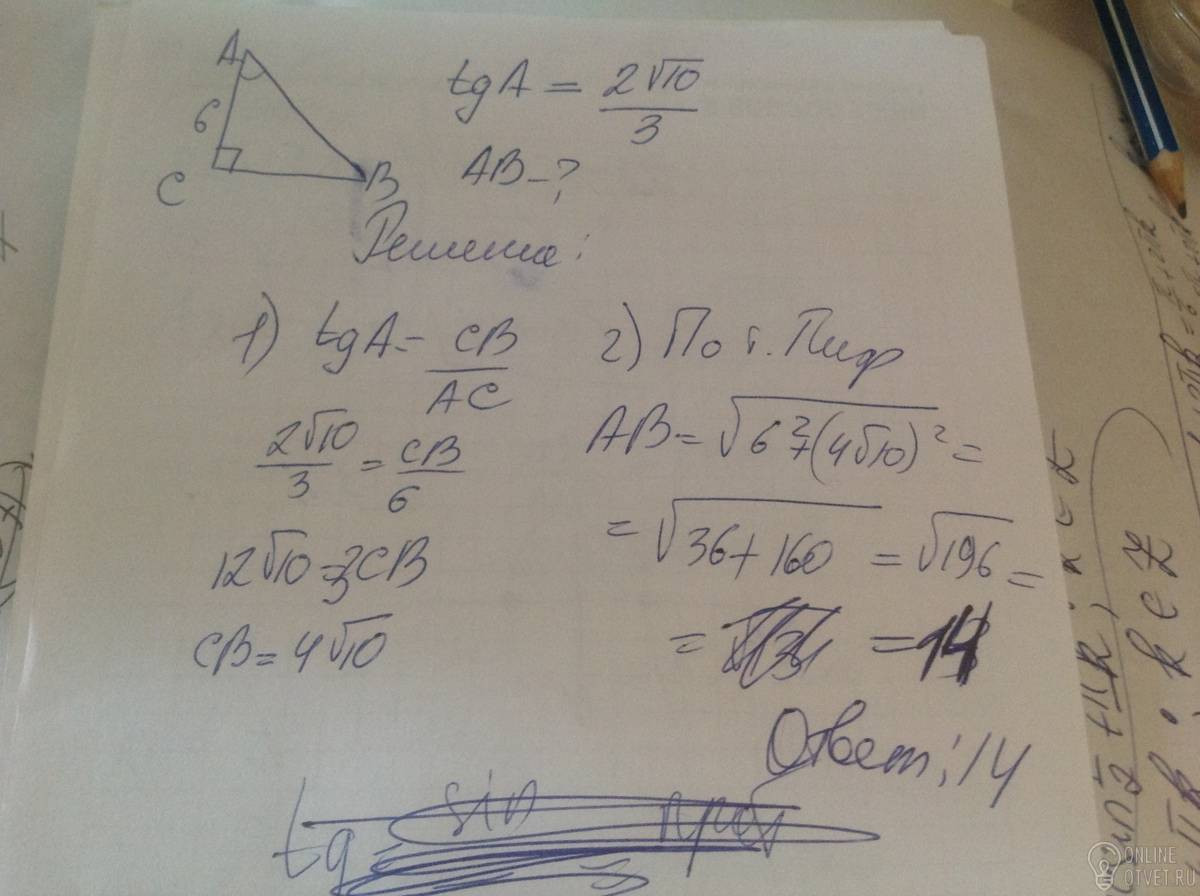 A
6
C
B
tgA = 2√10/3
AB-?
Решение:
1) tgA = CB/AC
2√10/3 = CB/6
12√10 = 3CB
CB = 4√10
2) По т. Пиф
AB = √6²+(4√10)² =
= √36+160 = √196 =
= = 14
Ответ: 14
tg sin
k ∈ Z
ONLINE
OTVET.RU